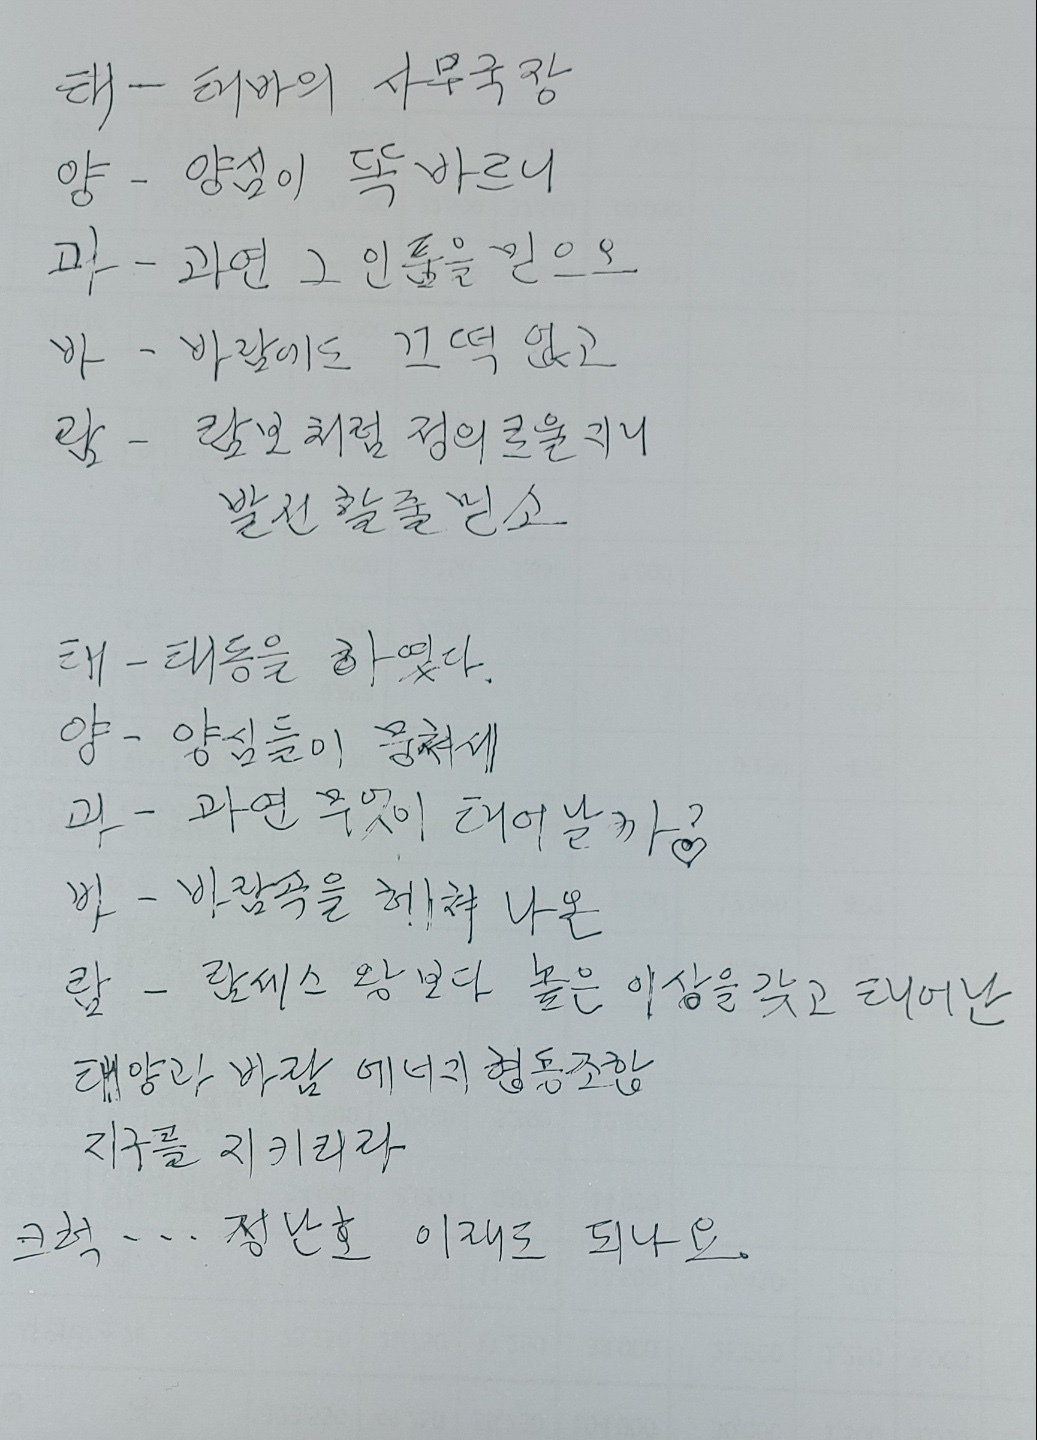 태 - 태바의 사무국장
양 - 양심이 똑 바르니
과 - 과연 그 인품을 믿으오
바 - 바람에도 끄떡 없고
람 - 람보처럼 정의로울지니
발전할줄 믿소
태 - 태동을 하였다.
양 - 양심들이 뭉쳐세
과 - 과연 무엇이 태어날까?
바 - 바람속을 헤쳐 나온
람 - 람세스 왕보다 높은 이상을 갖고 태어난
태양과 바람 에너지 협동조합
지구를 지키리라
크헉 ···· 정난호 이재도 되나요.